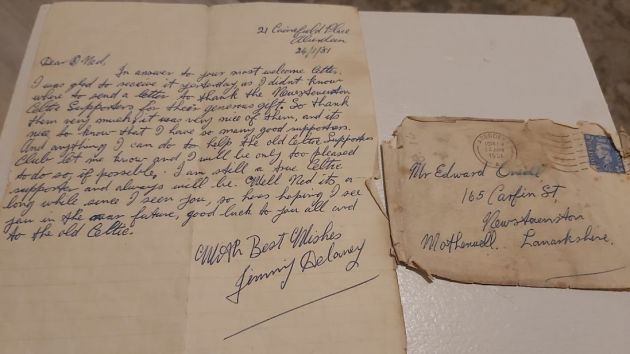 21 Cairnfield Place
Aberdeen
26/1/51
Dear Ned,
In answer to your most welcome letter.
I was glad to receive it yesterday as I didn't know
where to send a letter to thank the Newstevenston
Celtic Supporters for their generous gift. So thank
them very much it was very nice of them, and its
nice to know that I have so many good supporters.
And anything I can do to help the old Celtic Supporters
Club let me know and I will be only too pleased
to do so, if possible, I am still a true Celtic
supporter and always will be. Well Ned its a
long while since I seen you, so hers hoping I see
you in the near future, good luck to you all and
to the old Celtic.
With Best Wishes
Jimmy Delaney
ABERDEEN
Mr Edward
165 Carfin St,
Newstevenston
Motherwell. Lanarkshire.